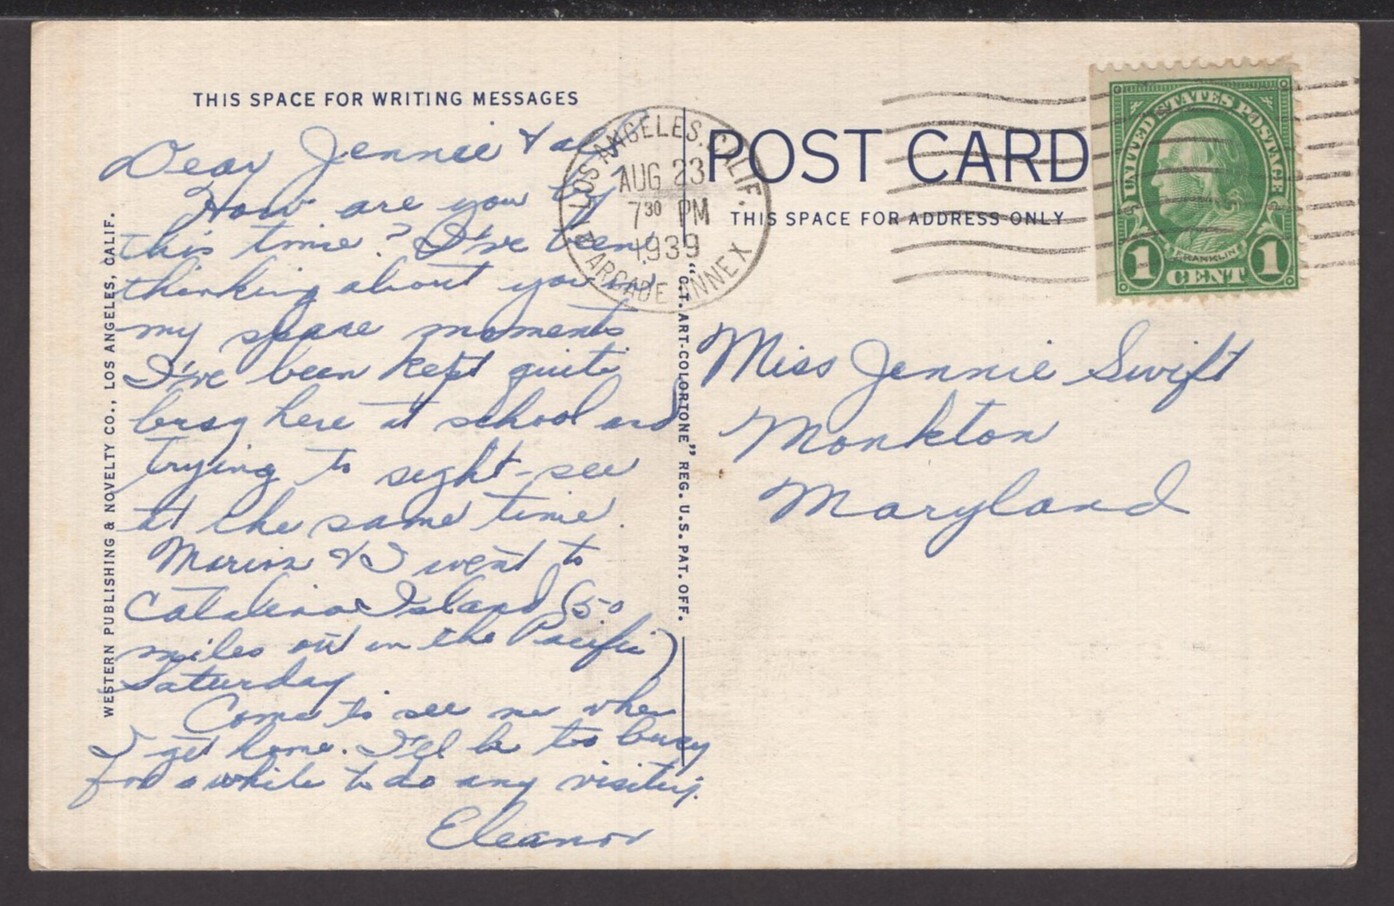 THIS SPACE FOR WRITING MESSAGES
Dear Jennie & all
How are you by
this time? I've been
thinking about you in
my spare moments.
I've been kept quite
busy here at school and
trying to sight-see
at the same time.
Marion & I went to
Catalina Island (50
miles out in the Pacific)
Saturday
Come to see me when
I get home. I'll be too busy
for a while to do any visiting.
Eleanor
WESTERN PUBLISHING & NOVELTY CO., LOS ANGELES, CALIF.
LOS ANGELES, CALIF.
AUG 23
7 30 PM
1939
ARCADE ANNEX
"C.T. ART-COLORTONE" REG. U.S. PAT. OFF.
POST CARD
THIS SPACE FOR ADDRESS ONLY
UNITED STATES POSTAGE
FRANKLIN
1 CENT 1
Miss Jennie Swift
Monkton
Maryland